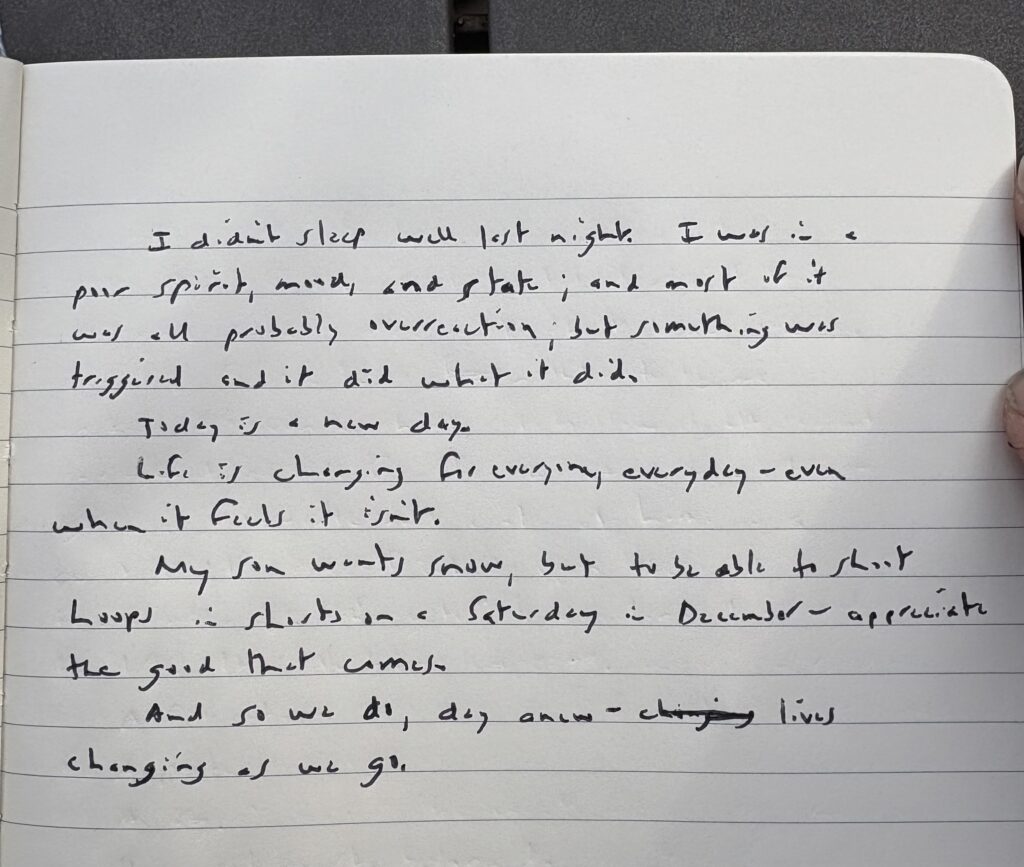 I didn't sleep well last night. I was in a
poor spirit, mood, and state; and most of it
was all probably overreaction, but something was
triggered and it did what it did.
Today is a new day.
Life is changing for everyone, everyday - even
when it feels it isn't.
My son wants snow, but to be able to shoot
hoops in shorts on a Saturday in December - appreciate
the good that comes.
And so we do, day anew - changing lives
changing as we go.